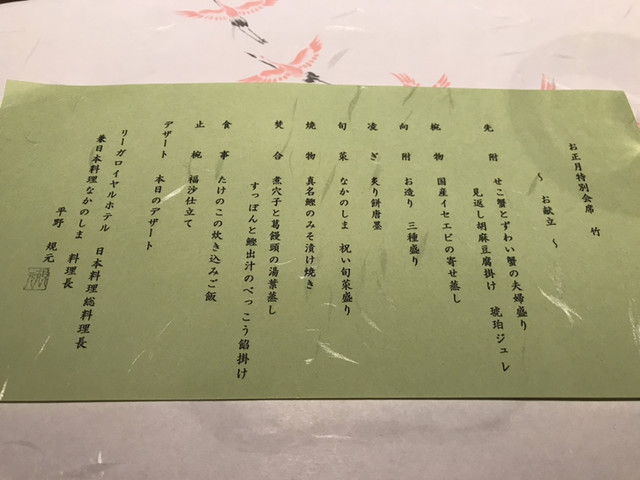 お正月特別会席　竹
～　お献立　～
先　附　せこ蟹とずわい蟹の夫婦盛り
見返し胡麻豆腐掛け　琥珀ジュレ
椀　物　国産イセエビの寄せ蒸し
向　附　お造り　三種盛り
凌　ぎ　炙り餅唐墨
旬　菜　なかのしま　祝い旬菜盛り
焼　物　真名鰹のみそ漬け焼き
焚　合　煮穴子と葛饅頭の湯葉蒸し
すっぽんと鰹出汁のべっこう餡掛け
食　事　たけのこの炊き込みご飯
止　椀　福沙仕立て
デザート　本日のデザート
リーガロイヤルホテル　日本料理　総料理長
兼日本料理なかのしま　料理長
平野　規元